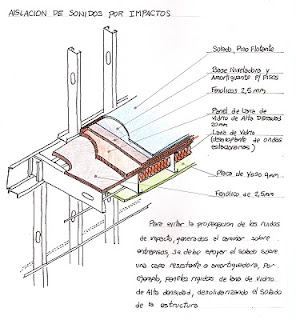 AISLACION DE SONIDOS POR IMPACTOS
Solado, Piso Flotante
Base Niveladora y
Amortiguante p/ Pisos
Fenólicos 2,5 mm
Panel de Lana de
Vidrio de Alta Densidad
20 mm
Lana de Vidrio
ondas
estacionarias)
Placa de Yeso 9mm
Fenólico de 2,5mm
Para evitar la propagacion de los ruidos
de impacto, generados al caminar sobre
entrepisos, se debe apoyar el solado sobre
una capa resistente a amortiguadora, Por
ejemplo, paneles rigidos de lana de vidrio
de Alta densidad, desolidarizando el Solado
de la estructura